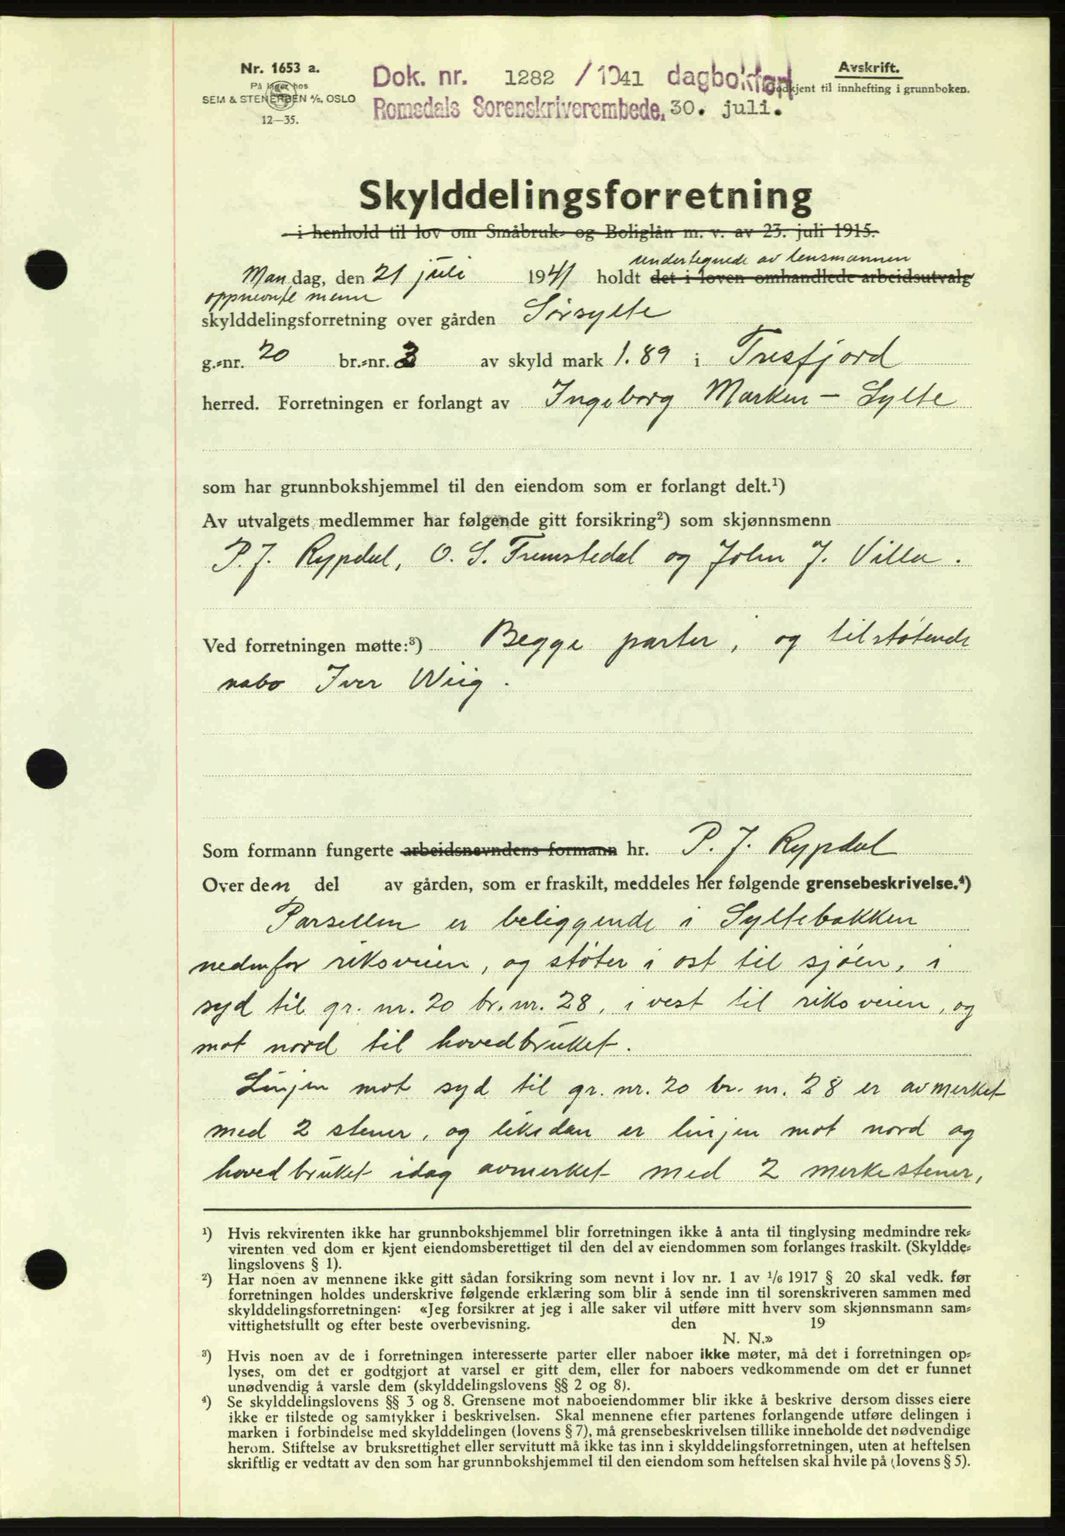 Nr. 1653 a.
På lager hos
SEM & STENERSEN A/S, OSLO
12—35.
Dok. nr. 1282 / 1941 dagbokført
Romsdals Sorenskriverembede, 30. juli.
Avskrift.
Godkjent til innhefting i grunnboken.
Skylddelingsforretning
i henhold til lov om Småbruk- og Boliglån m. v. av 23. juli 1915.
undertegnede av lensmannen
Mandag, den 21 juli 1941 holdt det i loven omhandlede arbeidsutvalg
oppnevnte menn
skylddelingsforretning over gården Sørsylte
g.-nr. 20 br.-nr. 3 av skyld mark 1.89 i Tresfjord
herred. Forretningen er forlangt av Ingeborg Marken – Sylte
som har grunnbokshjemmel til den eiendom som er forlangt delt.¹)
Av utvalgets medlemmer har følgende gitt forsikring²) som skjønnsmenn
P. J. Rypdal, O. S. Tremstedal og John J. Villa.
Ved forretningen møtte:³) Begge parter, og tilstøtende
nabo Iver Wiig.
Som formann fungerte arbeidsnevndens formann hr. P. J. Rypdal
Over den del av gården, som er fraskilt, meddeles her følgende grensebeskrivelse.⁴)
Parsellen er beliggende i Syltebakken
nedenfor riksveien, og støter i øst til sjøen, i
syd til gr. nr. 20 br. nr. 28, i vest til riksveien, og
mot nord til hovedbruket.
Linjen mot syd til gr. nr. 20 br. nr. 28 er avmerket
med 2 stener, og likedan er linjen mot nord og
hovedbruket idag avmerket med 2 merkestener,
¹) Hvis rekvirenten ikke har grunnbokshjemmel blir forretningen ikke å anta til tinglysing medmindre rek-
virenten ved dom er kjent eiendomsberettiget til den del av eiendommen som forlanges fraskilt. (Skyldde-
lingslovens § 1).
²) Har noen av mennene ikke gitt sådan forsikring som nevnt i lov nr. 1 av 1/6 1917 § 20 skal vedk. før
forretningen holdes underskrive følgende erklæring som blir å sende inn til sorenskriveren sammen med
skylddelingsforretningen: «Jeg forsikrer at jeg i alle saker vil utføre mitt hverv som skjønnsmann sam-
vittighetsfullt og efter beste overbevisning. den 19
N. N.»
³) Hvis noen av de i forretningen interesserte parter eller naboer ikke møter, må det i forretningen op-
lyses, om det er godtgjort at varsel er gitt dem, eller for naboers vedkommende om det er funnet
unødvendig å varsle dem (skylddelingslovens §§ 2 og 8).
⁴) Se skylddelingslovens §§ 3 og 8. Grensene mot naboeiendommer blir ikke å beskrive dersom disses eiere
ikke er tilstede og samtykker i beskrivelsen. Skal mennene efter partenes forlangende utføre delingen i
marken i forbindelse med skylddelingen (lovens § 7), må grensebeskrivelsen tillike inneholde det nødvendige
herom. Stiftelse av bruksrettighet eller servitutt må ikke tas inn i skylddelingsforretningen, uten at heftelsen
skriftlig er vedtatt av den som har grunnbokshjemmel til den eiendom som heftelsen skal hvile på (lovens § 5).